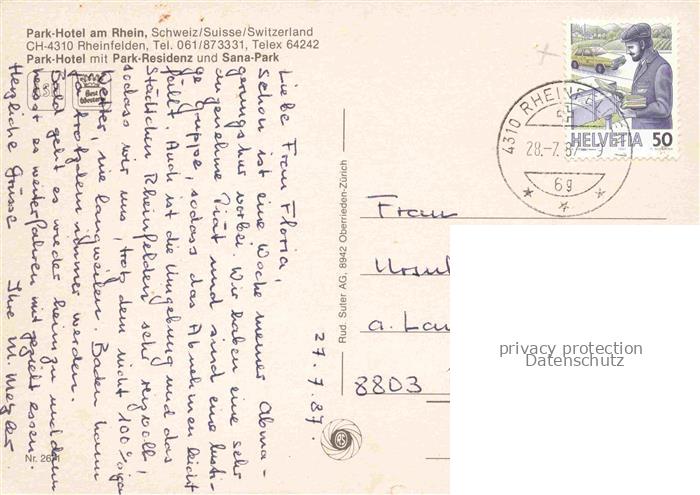 Park-Hotel am Rhein, Schweiz/Suisse/Switzerland
CH-4310 Rheinfelden, Tel. 061/873331, Telex 64242
Park-Hotel mit Park-Residenz und Sana-Park
Best Western
27.7.87.
Liebe Frau Floria,
Schon ist eine Woche meiner Abma-
gerungskur vorbei. Wir haben eine sehr
angenehme Diät und sind eine lusti-
ge Gruppe, sodass das Abnehmen leicht
fällt. Auch ist die Umgebung und das
Städtchen Rheinfelden sehr reizvoll,
sodass wir uns, trotz dem nicht 100%igen
Wetter, nie langweilen. Baden kann
man trotzdem immer werden.
Bald geht es wieder heimzu und dann
heisst es weiterfahren mit gezielt essen.
Herzliche Grüsse Ihre M. Metzler
Nr. 26
Rud. Suter AG, 8942 Oberrieden-Zürich
4310 RHEINF
28.-7.87-9
6g
HELVETIA 50
Frau
Ursul
a. Lan
8803
privacy protection
Datenschutz